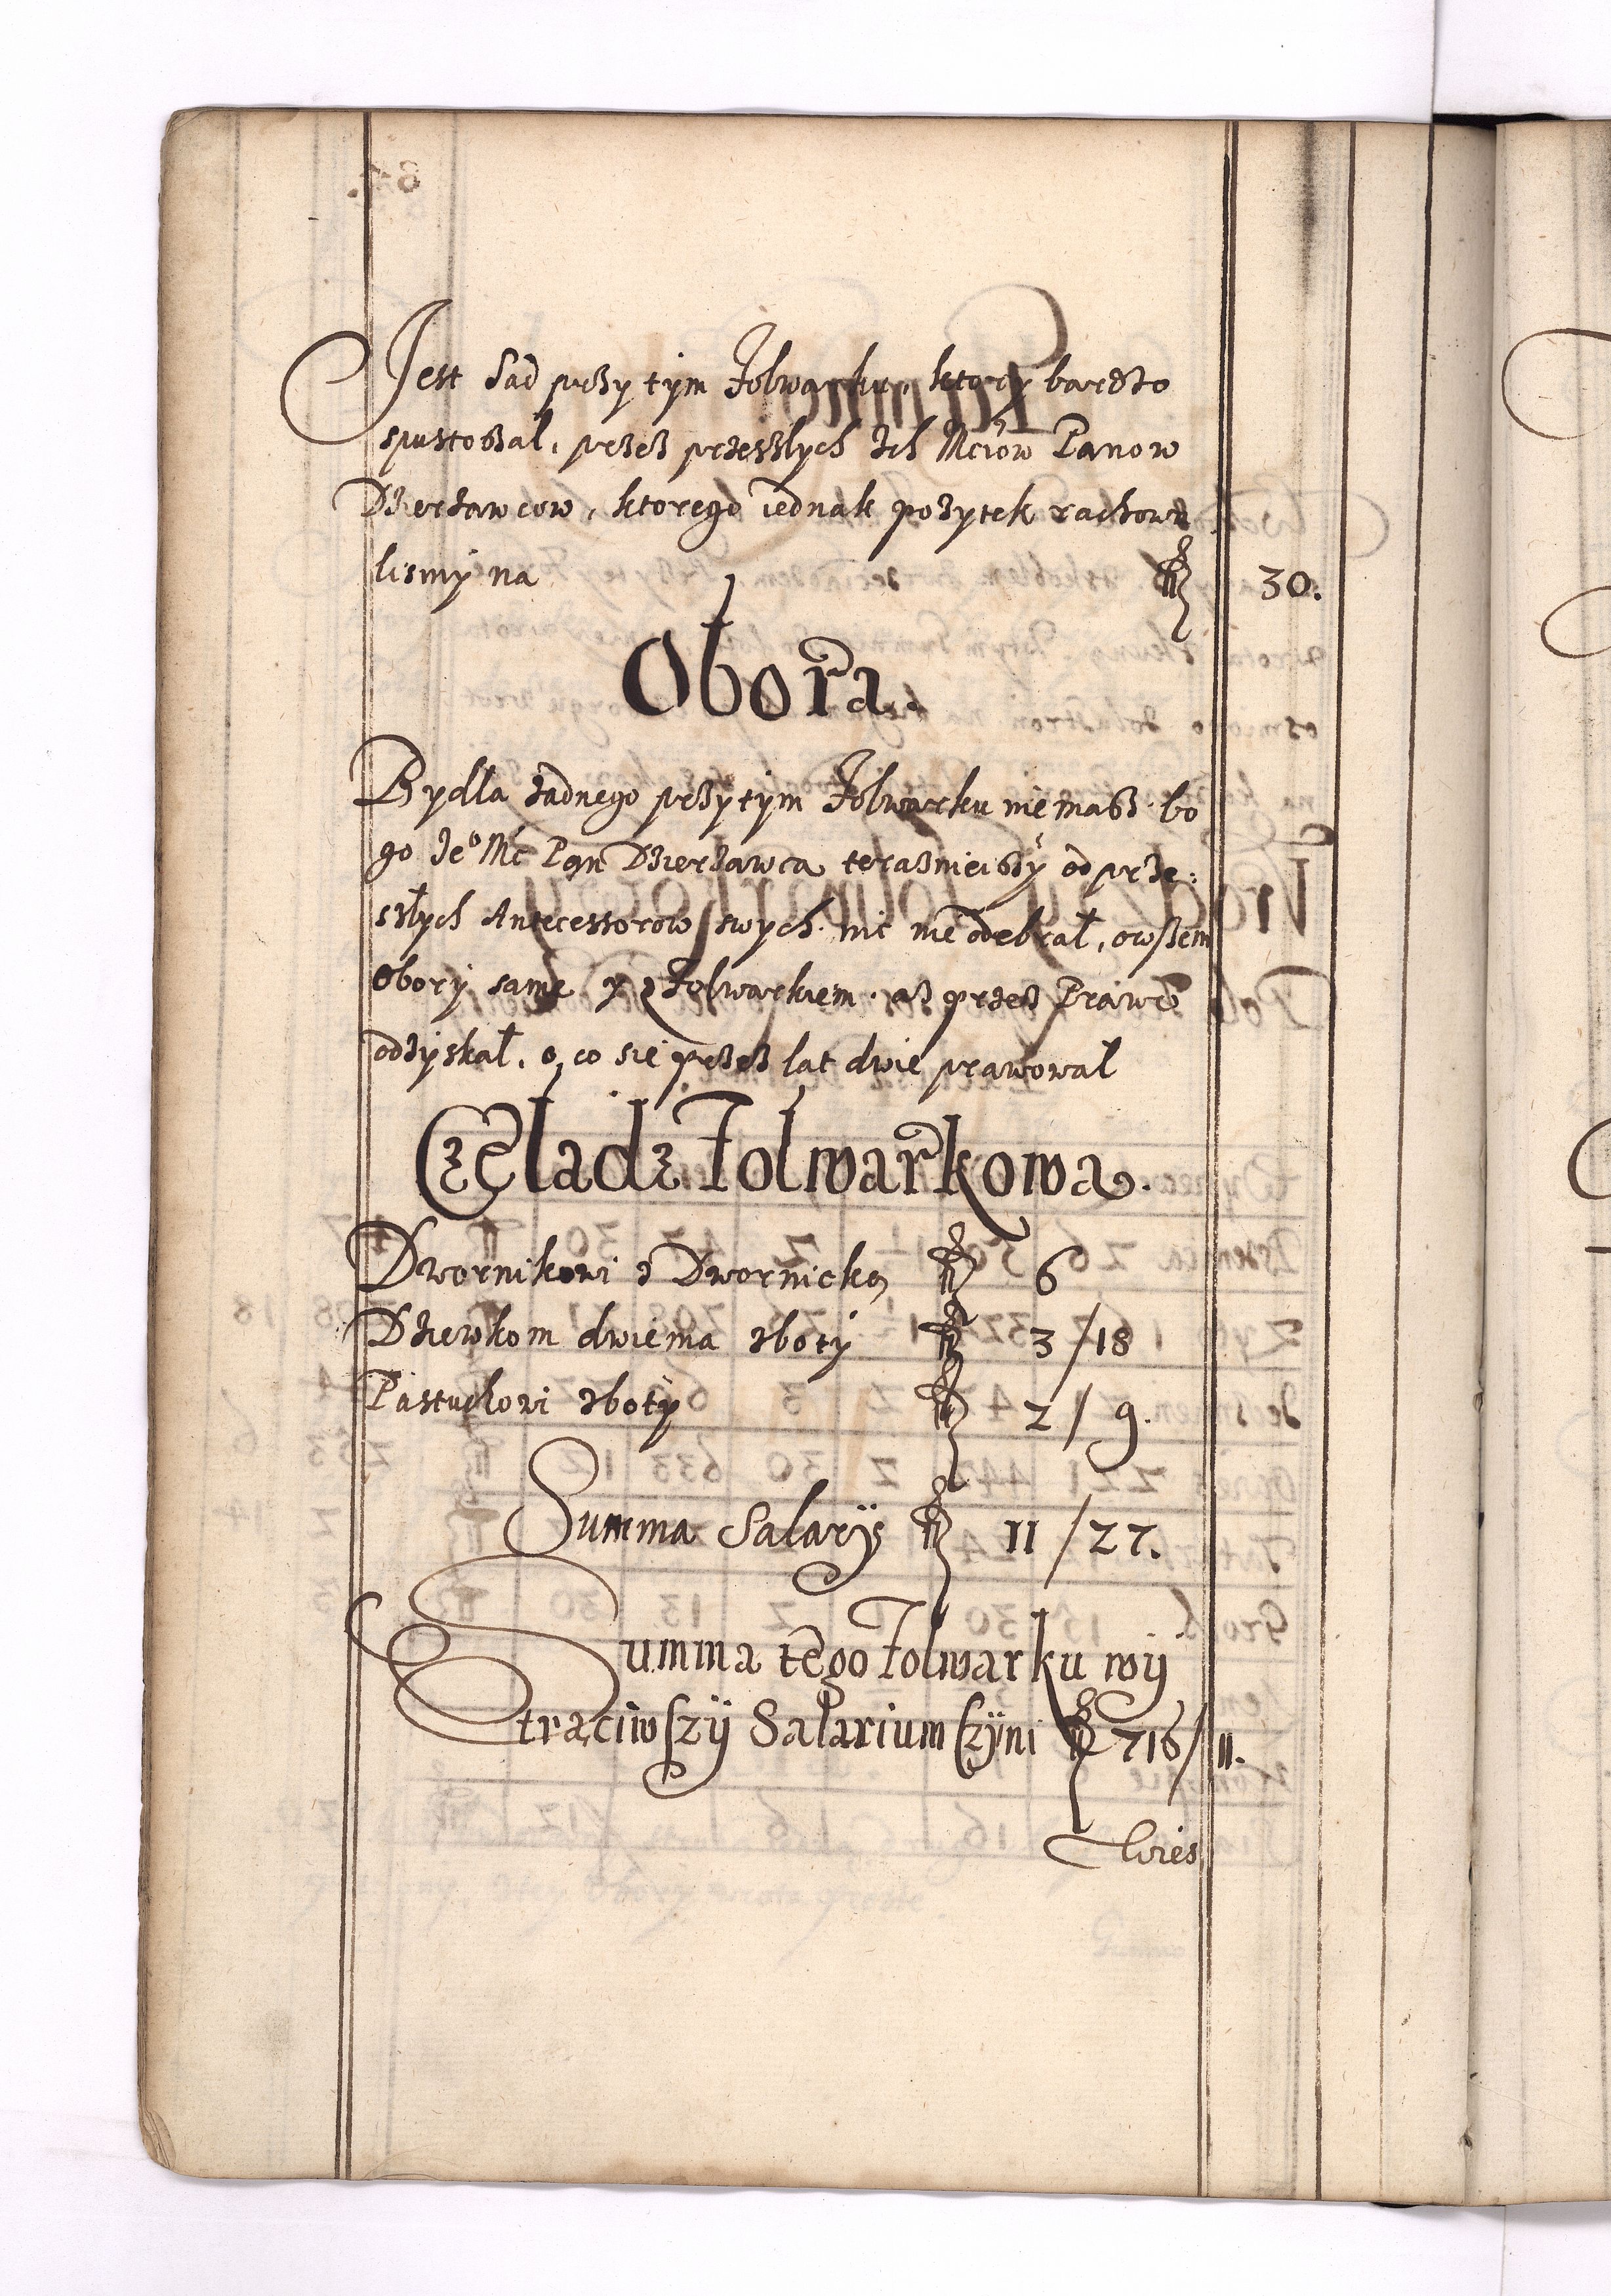 Jest Sad przy tym Folwarku, ktory barzdo
spustoszał, przez przeszłych Ich Mciów Panow
Dzierżawcow, ktorego iednak pożytek rachowa
lismy na fl 30.
Obora.
Bydła żadnego przy tym Folwarku nie masz. bo
go Je° Mć Pan Dzierżawca teraznieiszy od prze:
szłych Antecessorow swych. nic nie odebrał, owszem
Obory same y z Folwarkiem. aż przez Prawo
odzyskał, o co się przez lat dwie prawował
Czeladz Folwarkowa.
Dwornikowi z Dwornicką fl 6
Dziewkom dwiema z boty fl 3 / 18
Pastuchowi z boty fl 2 / 9.
Summa Salarÿ fl 11 / 27.
Summa tego Folwarku wÿ
traciwszÿ Salarium czÿni fl 716 / 11.
Wies